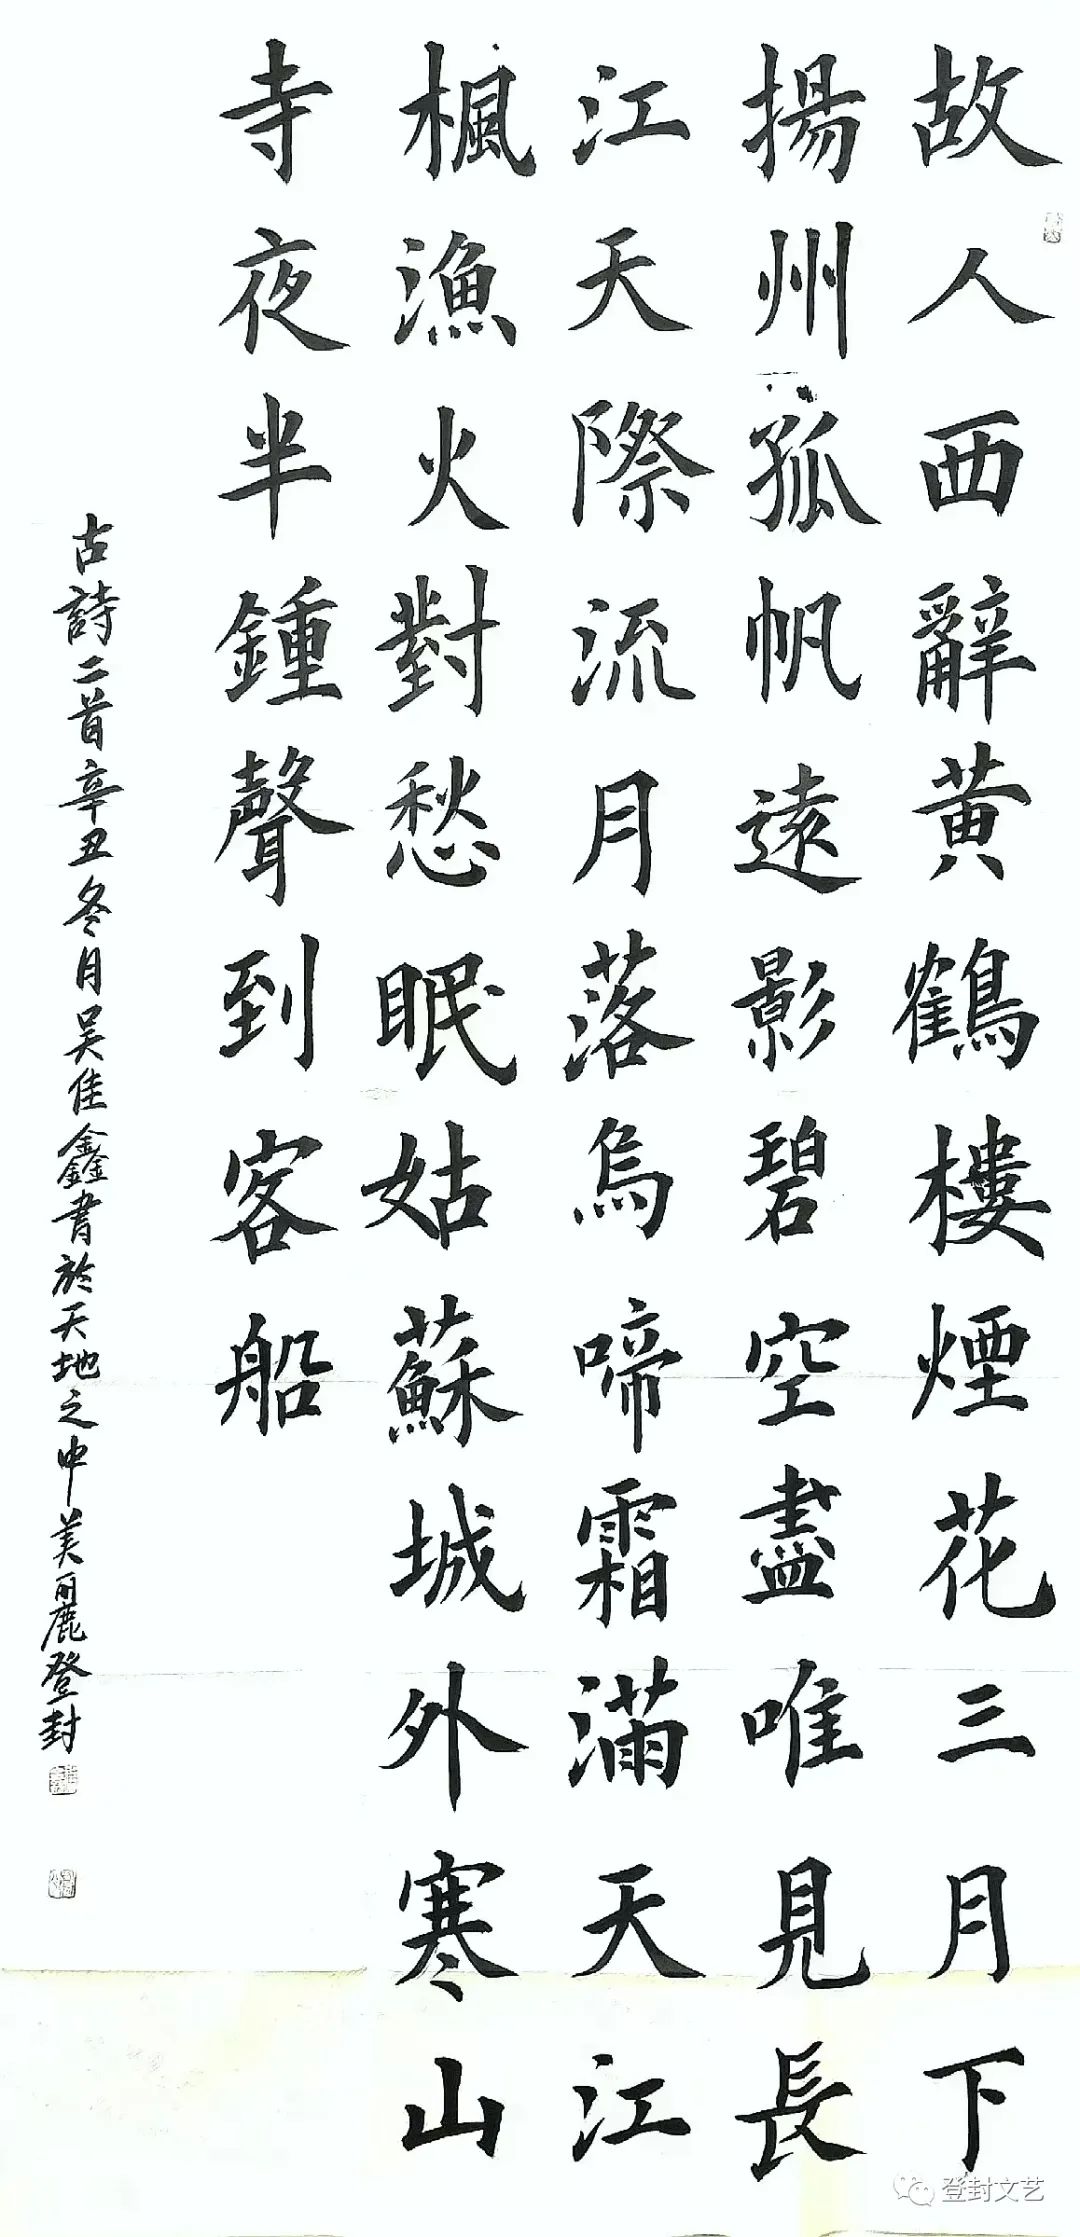 故人西辭黄鶴樓煙花三月下
揚州孤帆遠影碧空盡唯見長
江天際流月落烏啼霜滿天江
楓漁火對愁眠姑蘇城外寒山
寺夜半鍾聲到客船
古詩二首辛丑冬月吴佳鑫書於天地之中美麗登封
登封文艺